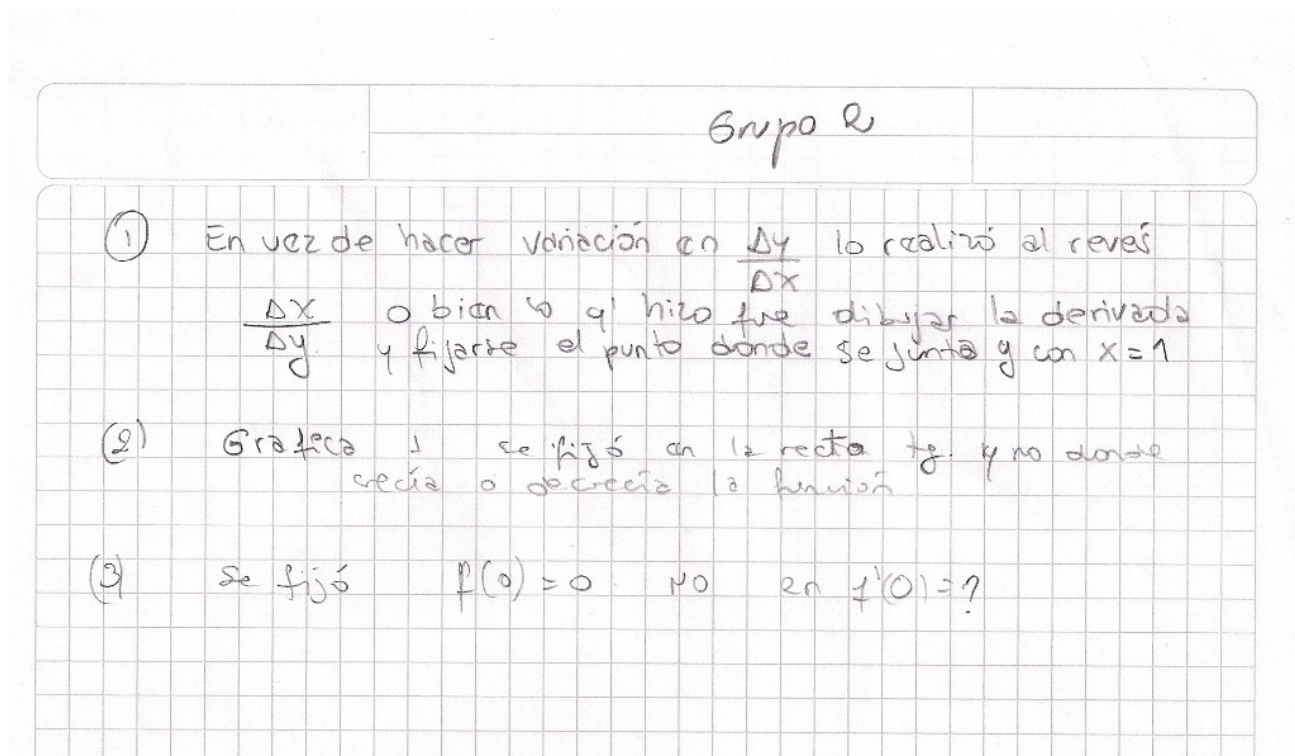 Grupo 2
① En vez de hacer variación en Δy/Δx lo realizó al revés
Δx/Δy o bien lo q' hizo fue dibujar la derivada
y fijarse el punto donde se junta y con x=1
(2) Grafica 1 se fijó en la recta tg. y no donde
crecía o decrecía la función
(3) Se fijó f(0)=0 no en f'(0)=?